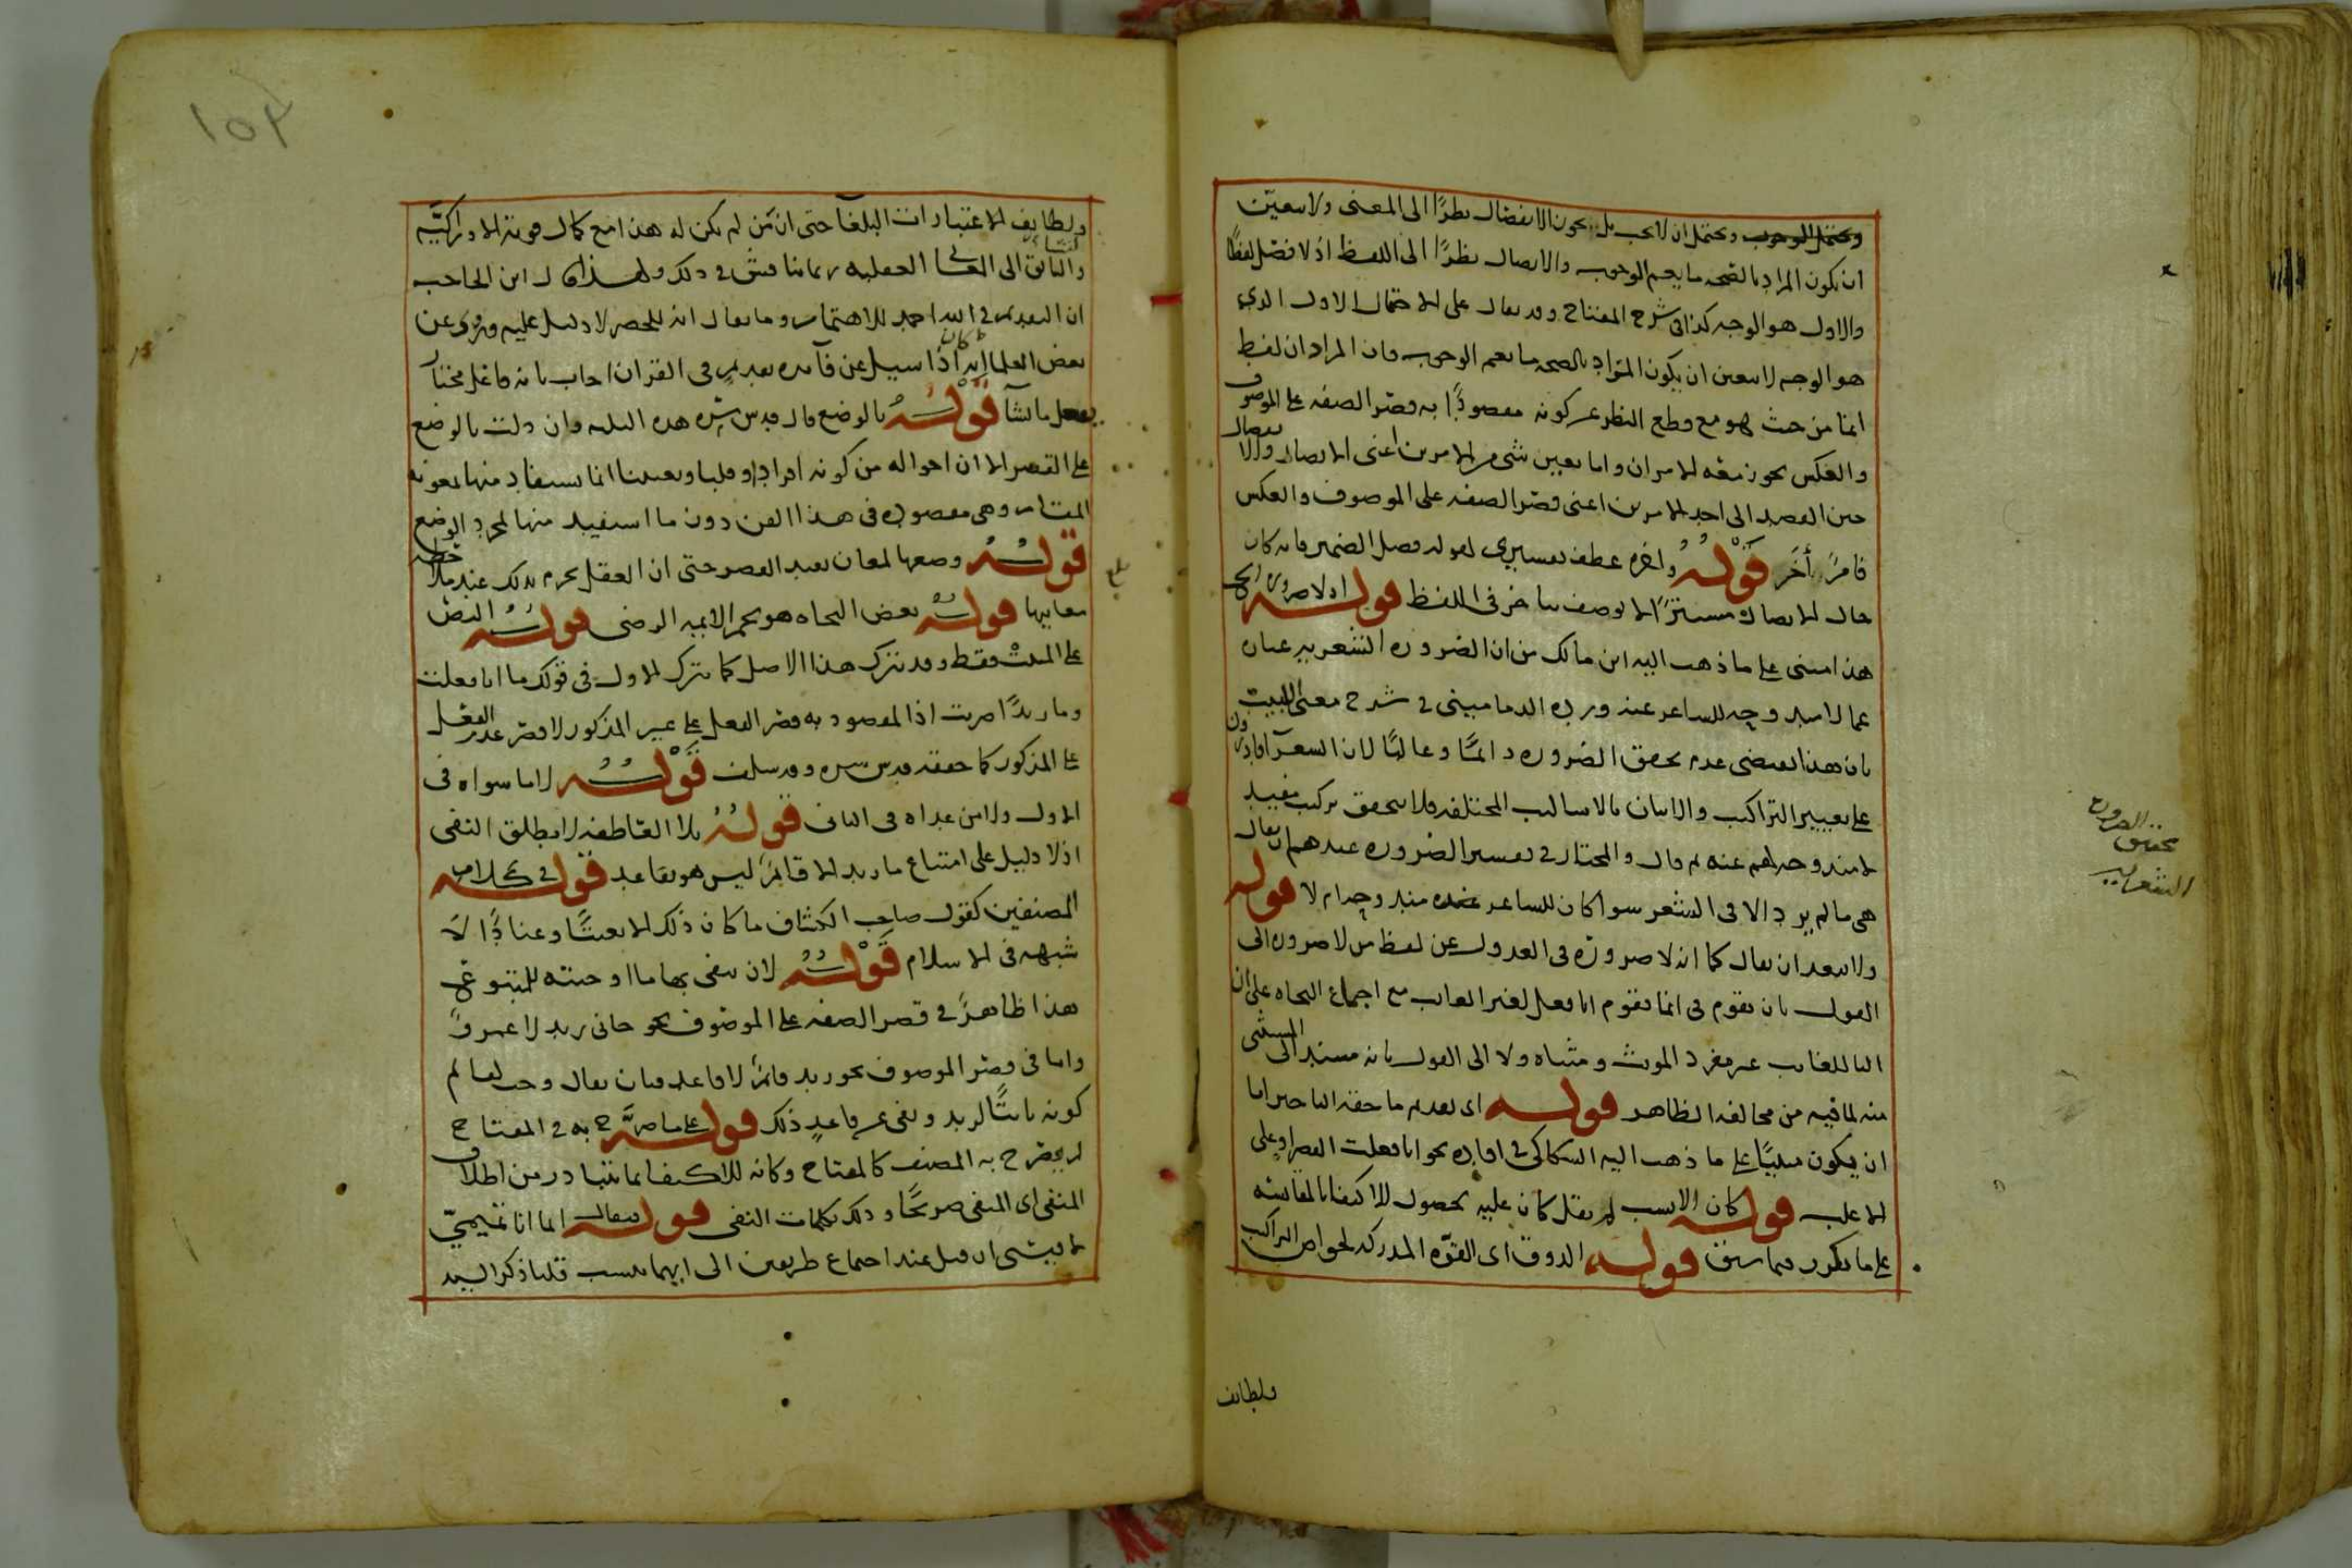 ويحتمل الوجوب ويحتمل ان لا يجب بل يجوز الانفصال نظرًا الى المعنى ولا يتعين
ان يكون المراد بالصحه ما يعم الوجوب والاتصال نظرًا الى اللفظ اذ لا فصل لفظًا
والاول هو الوجه كذا فى شرح المفتاح وقد يقال على الاحتمال الاول الذى
هو الوجه لا يتعين ان يكون المراد بالصحه ما يعم الوجوب فان المراد ان لفظ
انما من حيث هو مع قطع النظر عن كونه مقصودًا به قصر الصفه على الموصوف
والعكس يجوز معه الامران واما يعين شى من الامرين اعنى الاتصال والانفصال
حين القصد الى احد الامرين اعنى قصر الصفه على الموصوف والعكس
فامرٌ أخَر قوله واخره عطف تفسيرى لقوله فصل الضمير فانه كان
حال الاتصال مستترًا لا يوصف بتاخر فى اللفظ قوله اذ لا ضروره الخ
هذا مبنى على ما ذهب اليه ابن مالك من ان الضروره الشعريه عباره
عما لا مندوحه للشاعر عنه ورده الدمامينى فى شرح مغنى اللبيب
بان هذا يقتضى عدم تحقق الضروره دائمًا وغالبًا لان الشعرآ قادرون
على تغيير التراكيب والاتيان بالاساليب المختلفه فلا يتحقق تركيب مقيد
لا مندوحه لهم عنه ثم قال والمختار فى تفسير الضروره عندهم ان يقال
هى ما لم يرد الا فى الشعر سوا كان للشاعر عنه مندوحه ام لا قوله
ولا يبعد ان يقال كما انه لا ضرورة فى العدول عن لفظ من لا ضروره الى
القول بان تقوم فى انما تقوم انا فعل لغير الغايب مع اجماع النحاه على ان
اليا للغايب غير مفرد المونث ومثناه ولا الى القول بانه مسند الى المستثنى
منه لما فيه من مخالفه الظاهر قوله اى تقديم ما حقه التاخير اما
ان يكون مبنيًا على ما ذهب اليه السكاكى فى افاده نحو انا فعلت القصر او على
الاغلب قوله كان الانسب لم يقل كان عليه لحصول الاكتفا بالمقايسه
على ما تكرر فيما سبق قوله الذوق اى القوّه المدركه لخواص التراكيب
ولطايف
تحقيق الضروره
الشعريه
١٥٣
ولطايف الاعتبارات البلغآ حتى ان مَن لم يكن له هذا مع كمال قوته الادراكيَّه
والتانق الى المعانى العقليه ربما نناقش فى ذلك ولهذا قال ابن الحاجب
ان التقديم فى الله احمد للاهتمام وما يقال انه للحصر لا دليل عليه وروى عن
بعض العلما انه كان اذا سيل عن فآئده تقديم فى القران اجاب بانه فاعل مختار
يفعل ما يشآ قوله بالوضع قال قدس سره هذه الثلثه وان دلت بالوضع
على القصر الا ان احواله من كونه افرادًا وقلبا وتعيينا انما يستفاد منها بمعونه
المقام وهى مقصوده فى هذا الفن دون ما استفيد منها بمجرد الوضع
قوله وضعها لمعان تفيد القصر حتى ان العقل يجزم بذلك عند ملاحظه
معانيها قوله بعض النحاه هو نجم الايمه الرضى قوله النص
على المثبت فقط وقد يترك هذا الاصل كما يترك الاول فى قولك ما انا فعلت
وما زيدًا ضربت اذ المقصود به قصر الفعل على غير المذكور لا قصر عدم الفعل
على المذكور كما حققه قدس سره وقد سلف قوله لا ما سواه فى
الاول ولا من عداه فى الثانى قوله بلا العاطفه لا مطلق النفى
اذ لا دليل على امتناع ما زيد الا قائمٌ ليس هو بقاعد قوله فى كلام
المصنفين كقول صاحب الكشاف ما كان ذلك الا تعنتًا وعنادًا لا
شبهه فى الاسلام قوله لان تنفى بها ما اوجبته للمتبوع
هذا ظاهرٌ فى قصر الصفه على الموصوف نحو جانى زيد لا عمروٌ
واما فى قصر الموصوف نحو زيد قائمٌ لا قاعد فبان يقال وجب لقائم
كونه ثابتًا لزيد ونفى عن قاعدٍ ذلك قوله على ما صرَّح به فى المفتاح
لم يصرح به المصنف كالمفتاح وكانه للاكتفا بما يتبادر من اطلاق
المنفى اى المنفى صريحًا وذلك بكلمات النفى قوله فيقال انما انا تميمىّ
لا قيسى ان قيل عند اجتماع طريقين الى ايهما ينسب قلنا ذكر السيد
بلغ